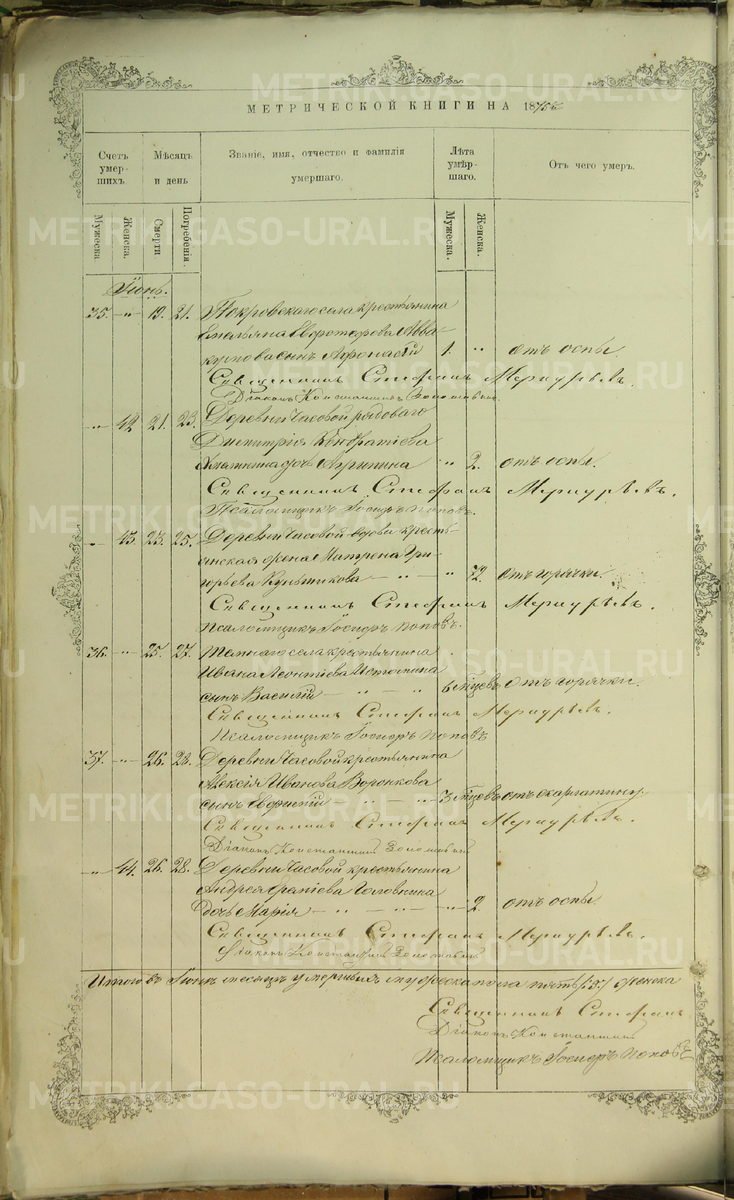 METRIKI.GASO-URAL.RU
МЕТРИЧЕСКОЙ КНИГИ НА 18
Счетъ умер-шихъ.
Мѣсяцъ и день
Званіе, имя, отчество и фамилія умершаго.
Лѣта умѣр-шаго.
Отъ чего умеръ.
Мужеска.
Женска.
Смерти
Погребенія.
Мужеска.
Женска.
Іюнь.
35. " 19. 21. Покровскаго села крестьянина
Емельяна Авва-
кумова сынъ Афонасій 1. " отъ оспы.
Священникъ Стефанъ Меркурьевъ.
Діаконъ Константинъ
" 42. 21. 23. Деревни Часовой рядоваго
Димитрія Кондратіева
дочь Агрипина " 2. отъ оспы.
Священникъ Стефанъ Меркурьевъ.
Псаломщикъ Госифъ Поповъ.
" 43. 23. 25. Деревни Часовой вдова кресть-
янская жена Матрена Гри-
горьева " 72. отъ горячки.
Священникъ Стефанъ Меркурьевъ.
Псаломщикъ Госифъ Поповъ.
36. " 25. 27. села крестьянина
Ивана Леонтіева Истомина
сынъ Василій 6 мѣцевъ отъ горячки.
Священникъ Стефанъ Меркурьевъ.
Псаломщикъ Госифъ Поповъ
37. " 26. 28. Деревни Часовой крестьянина
Алексія Иванова Воронкова
сынъ 3 мѣцевъ отъ скарлатины
Священникъ Стефанъ Меркурьевъ.
Діаконъ Константинъ
" 44. 26. 28. Деревни Часовой крестьянина
Андрея Головнина
дочь Марія " 2. отъ оспы
Священникъ Стефанъ Меркурьевъ.
Діаконъ Константинъ
Итого въ Іюнѣ месяцѣ умершихъ мужеска пола женска
Священникъ Стефанъ
Діаконъ Константинъ
Псаломщикъ Госифъ Поповъ